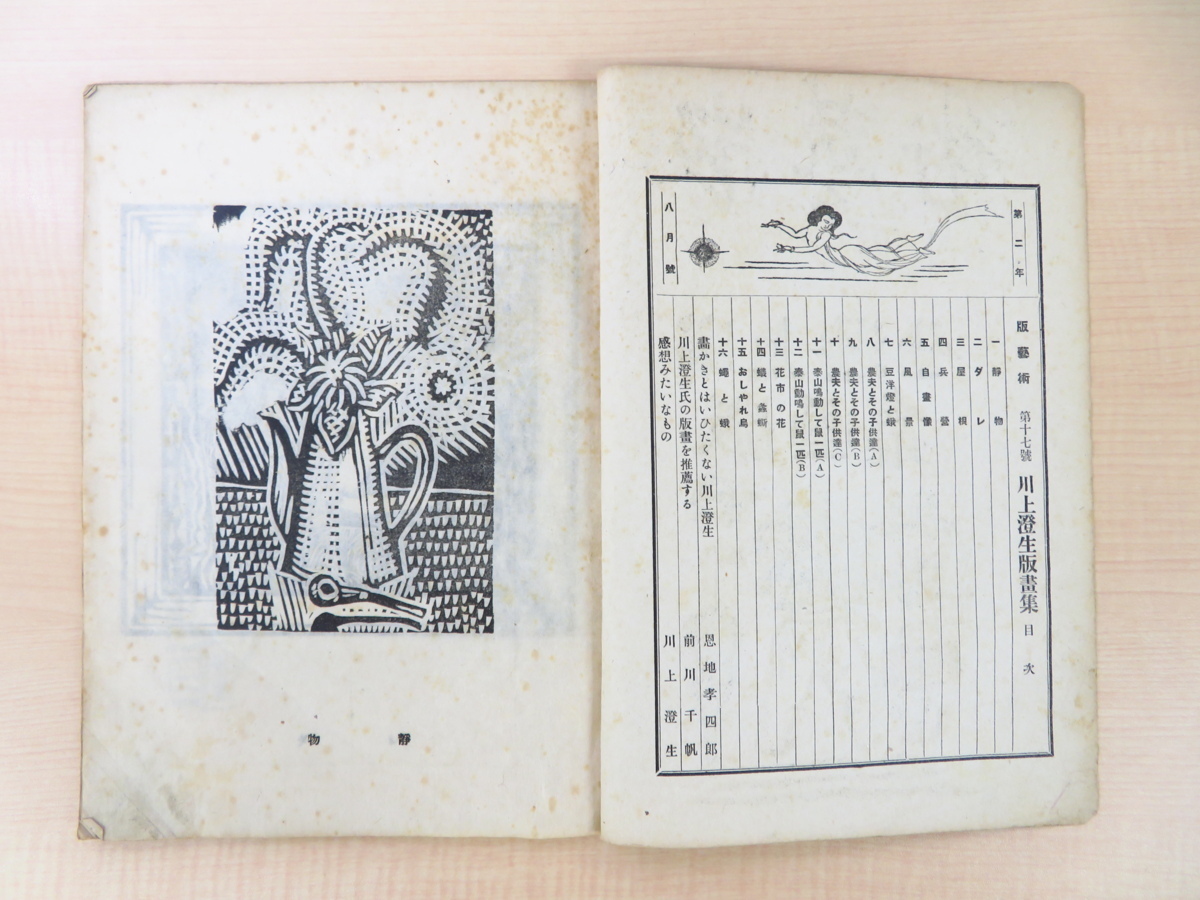 第二年
八月號
版藝術 第十七號 川上澄生版畫集 目次
一 靜物
二 ダレ
三 屋根
四 兵營
五 自畫像
六 風景
七 豆洋燈と蛾
八 農夫とその子供達(A)
九 農夫とその子供達(B)
十 農夫とその子供達(C)
十一 泰山鳴動して鼠一匹(A)
十二 泰山動鳴して鼠一匹(B)
十三 花市の花
十四 蟻と螽蟖
十五 おしやれ鳥
十六 蠅と蛾
畫かきとはいひたくない川上澄生 恩地孝四郎
川上澄生氏の版畫を推薦する 前川千帆
感想みたいなもの 川上澄生
靜物